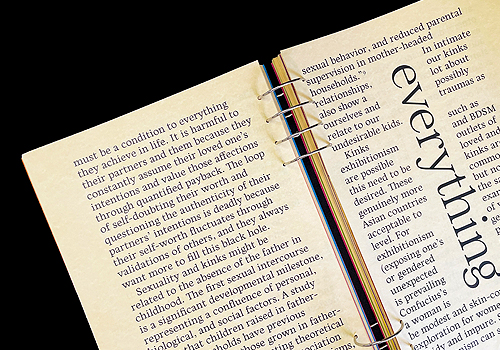 must be a condition to everything
they achieve in life. It is harmful to
their partners and them because they
constantly assume their loved one's
intentions and value those affections
through quantified payback. The loop
of self-doubting their worth and
questioning the authenticity of their
partners' intentions is deadly because
their self-worth fluctuates through
validations of others, and they always
want more to fill this black hole.
Sexuality and kinks might be
related to the absence of the father in
childhood. The first sexual intercourse
is a significant developmental milestone,
representing a confluence of personal,
biological, and social factors. A study
that children raised in father-
households have previous
grown in father-
theoretical
sexual behavior, and reduced parental
“supervision in mother-headed
households.”
relationships,
also show a
ourselves and
relate to our
undesirable kids.
Kinks
exhibitionism
are possible
this need to be
desired. These
genuinely more
Asian countries
acceptable to
level. For
exhibitionism
(exposing one's
or gendered
unexpected
is prevailing
Confucius's
a woman is
be modest and skin-
exploration for women
and impure. S
can
everything
In intimate
our kinks
lot about
possibly
traumas as
such as
and BDSM
outlets of
loved and
kinks are
commu
but m
the s
exam
of